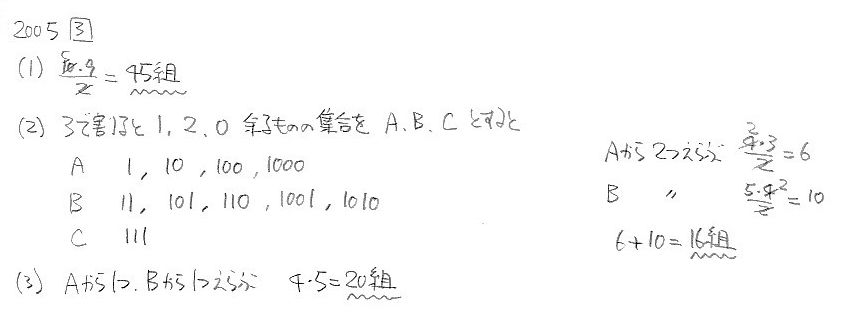 2005 3
(1) 10・9/2 = 45組
(2) 3で割ると 1, 2, 0 余るものの集合を A, B, C とすると
A 1, 10, 100, 1000
B 11, 101, 110, 1001, 1010
C 111
Aから2つえらぶ 4・3/2 = 6
B 〃 5・4/2 = 10
6+10=16組
(3) Aから1つ, Bから1つえらぶ 4・5=20組